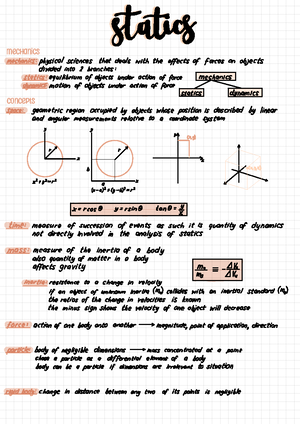 statics
MECHANICS
mechanics: physical sciences that deals with the effects of forces on objects
divided into 2 branches:
statics: equilibrium of objects under action of force
dynamics: motion of objects under action of force
mechanics
statics dynamics
CONCEPTS
space: geometric region occupied by objects whose position is described by linear
and angular measurements relative to a coordinate system
x²+y²=r²
(x-a)²+(y-b)²=r²
x = r cos θ y = r sin θ tan θ = y/x
time: measure of succession of events as such it is quantity of dynamics
not directly involved in the analysis of statics
mass: measure of the inertia of a body
also quantity of matter in a body
affects gravity
inertia: resistance to a change in velocity
if an object of unknown inertia (m₁) collides with an inertial standard (m₀)
the ratios of the change in velocities is known
the minus sign shows the velocity of one object will decrease
force: action of one body onto another → magnitude, point of application, direction
particle: body of negligible dimensions → mass concentrated at a point
chosen as a differential element of a body
body can be a particle if dimensions are irrelevant to situation
rigid body: change in distance between any two of its points is negligible